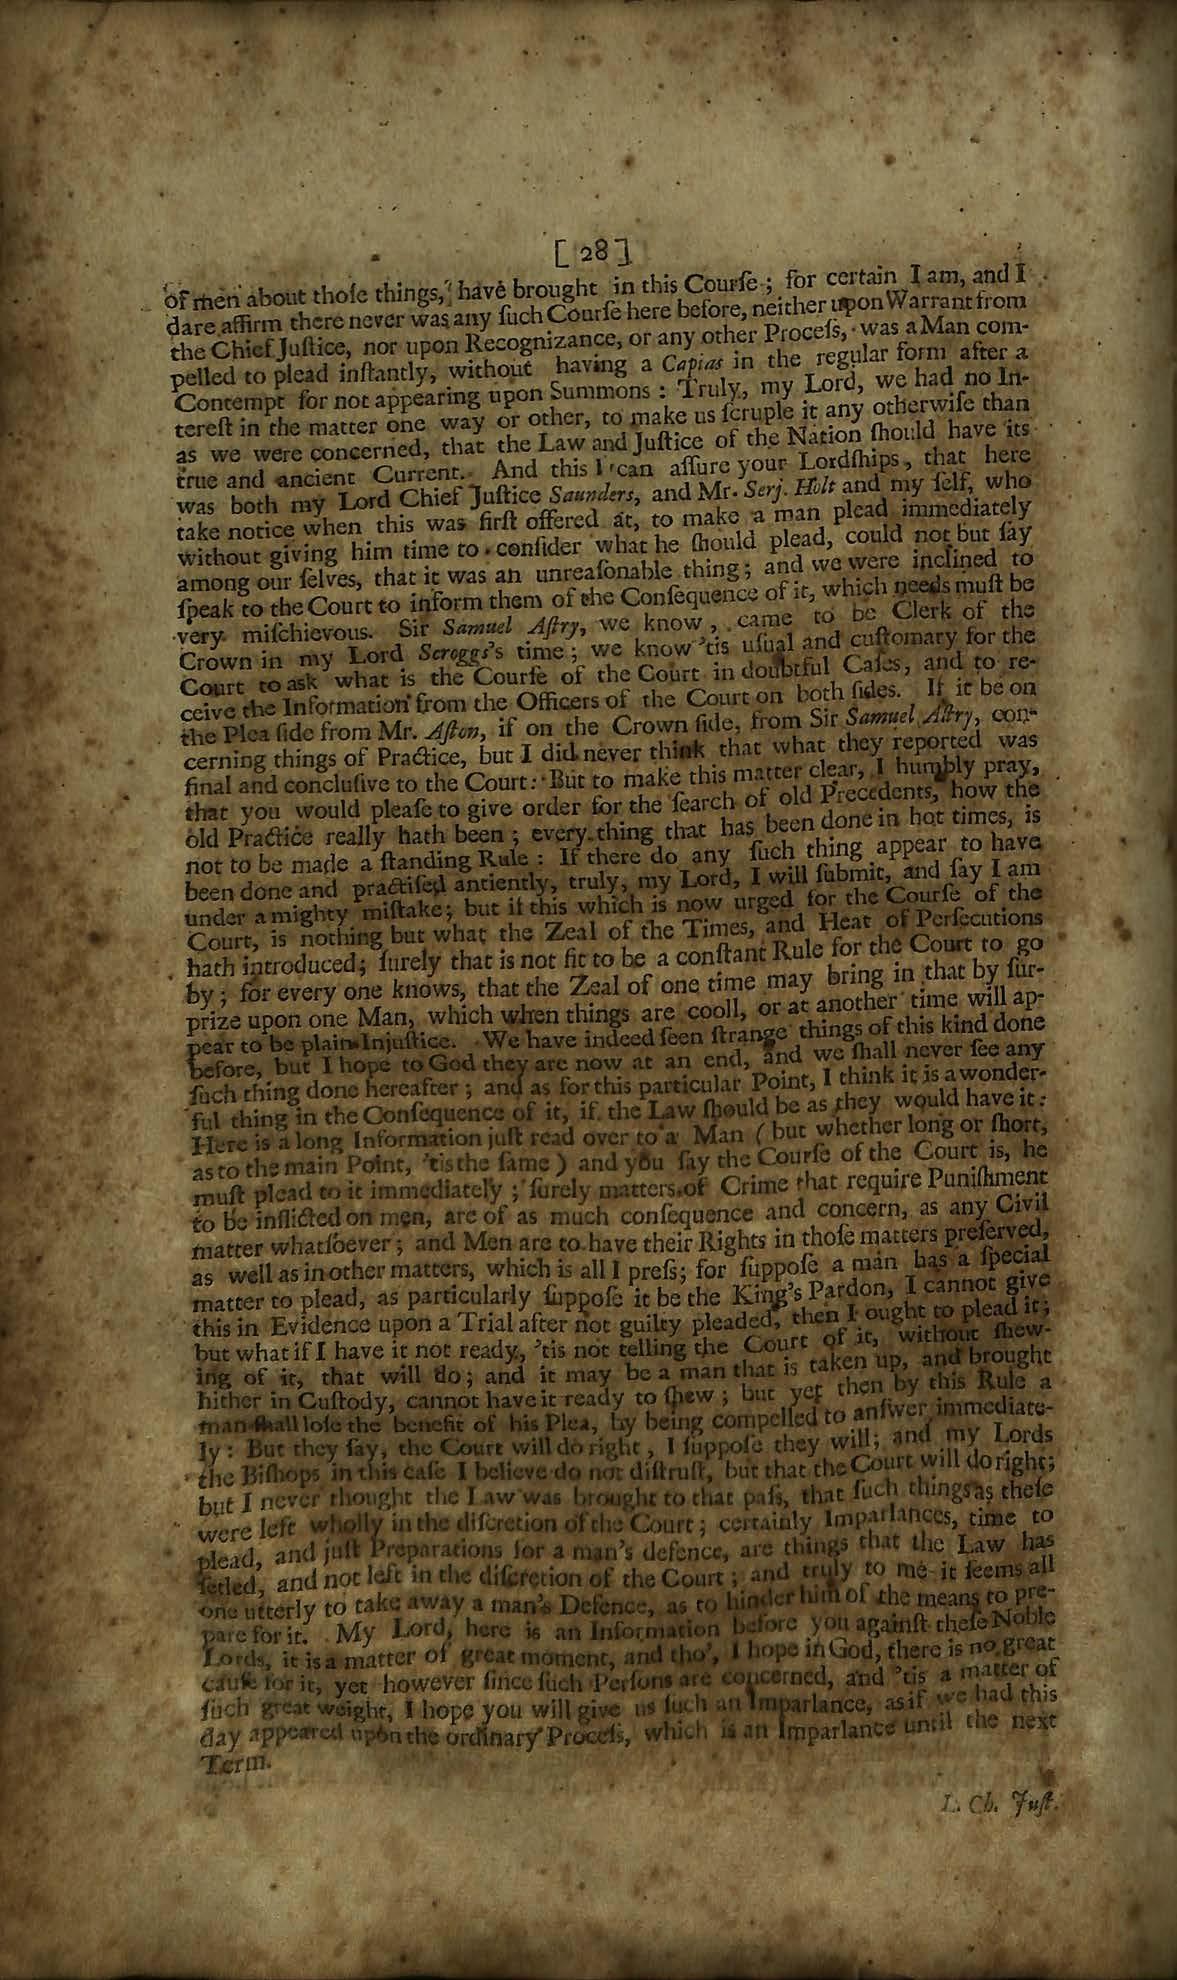 [ 28 ]
of men about thoſe things, have brought in this Courſe ; for certain I am, and I
dare affirm there never was any ſuch Courſe here before, neither upon Warrant from
the Chief Juſtice, nor upon Recognizance, or any other Proceſs, was a Man com-
pelled to plead inſtantly, without having a Capias in the regular form after a
Contempt for not appearing upon Summons : Truly, my Lord, we had no In-
tereſt in the matter one way or other, to make us ſcruple it any otherwiſe than
as we were concerned, that the Law and Juſtice of the Nation ſhould have its
true and ancient Current. And this I can aſſure your Lordſhips, that here
was both my Lord Chief Juſtice Saunders, and Mr. Serj. Holt and my ſelf, who
take notice when this was firſt offered at, to make a man plead immediately
without giving him time to conſider what he ſhould plead, could not but ſay
among our ſelves, that it was an unreaſonable thing ; and we were inclined to
ſpeak to the Court to inform them of the Conſequence of it, which needs muſt be
very miſchievous. Sir Samuel Aſtry, we know, came to be Clerk of the
Crown in my Lord Scroggs's time ; we know 'tis uſual and cuſtomary for the
Court to ask what is the Courſe of the Court in doubtful Caſes, and to re-
ceive the Information from the Officers of the Court on both ſides. If it be on
the Plea ſide from Mr. Aſton, if on the Crown ſide, from Sir Samuel Aſtry, con-
cerning things of Practice, but I did never think that what they reported was
final and concluſive to the Court : But to make this matter clear, I humbly pray,
that you would pleaſe to give order for the ſearch of old Precedents, how the
old Practice really hath been ; every thing that has been done in hot times, is
not to be made a ſtanding Rule : If there do any ſuch thing appear to have
been done and practiſed antiently, truly, my Lord, I will ſubmit, and ſay I am
under a mighty miſtake ; but if this which is now urged for the Courſe of the
Court, is nothing but what the Zeal of the Times, and Heat of Perſecutions
hath introduced ; ſurely that is not fit to be a conſtant Rule for the Court to go
by ; for every one knows, that the Zeal of one time may bring in that by ſur-
prize upon one Man, which when things are cooll, or at another time will ap-
pear to be plain Injuſtice. We have indeed ſeen ſtrange things of this kind done
before, but I hope to God they are now at an end, and we ſhall never ſee any
ſuch thing done hereafter ; and as for this particular Point, I think it is a wonder-
ful thing in the Conſequence of it, if the Law ſhould be as they would have it :
Here is a long Information juſt read over to a Man ( but whether long or ſhort,
as to the main Point, 'tis the ſame ) and you ſay the Courſe of the Court is, he
muſt plead to it immediately ; ſurely matters of Crime that require Puniſhment
to be inflicted on men, are of as much conſequence and concern, as any Civil
matter whatſoever ; and Men are to have their Rights in thoſe matters preſerved,
as well as in other matters, which is all I preſs ; for ſuppoſe a man has a ſpecial
matter to plead, as particularly ſuppoſe it be the King's Pardon, I cannot give
this in Evidence upon a Trial after not guilty pleaded, then I ought to plead it ;
but what if I have it not ready, 'tis not telling the Court of it, without ſhew-
ing of it, that will do ; and it may be a man that is taken up, and brought
hither in Cuſtody, cannot have it ready to ſhew ; but yet then by this Rule a
man ſhall loſe the benefit of his Plea, by being compelled to anſwer immediate-
ly : But they ſay, the Court will do right, I ſuppoſe they will ; and my Lords
the Biſhops in this caſe I believe do not diſtruſt, but that the Court will do right ;
but I never thought the Law was brought to that paſs, that ſuch things as theſe
were left wholly in the diſcretion of the Court ; certainly Imparlances, time to
plead, and juſt Preparations for a man's defence, are things that the Law has
ſetled, and not left in the diſcretion of the Court ; and truly to me it ſeems all
one utterly to take away a man's Defence, as to hinder him of the means to pre-
pare for it. My Lord, here is an Information before you againſt theſe Noble
Lords, it is a matter of great moment, and tho', I hope in God, there is no great
cauſe for it, yet however ſince ſuch Perſons are concerned, and 'tis a matter of
ſuch great weight, I hope you will give us ſuch an Imparlance, as if we had this
day appeared upon the ordinary Proceſs, which is an Imparlance until the next
Term.
L. Ch. Juſt.